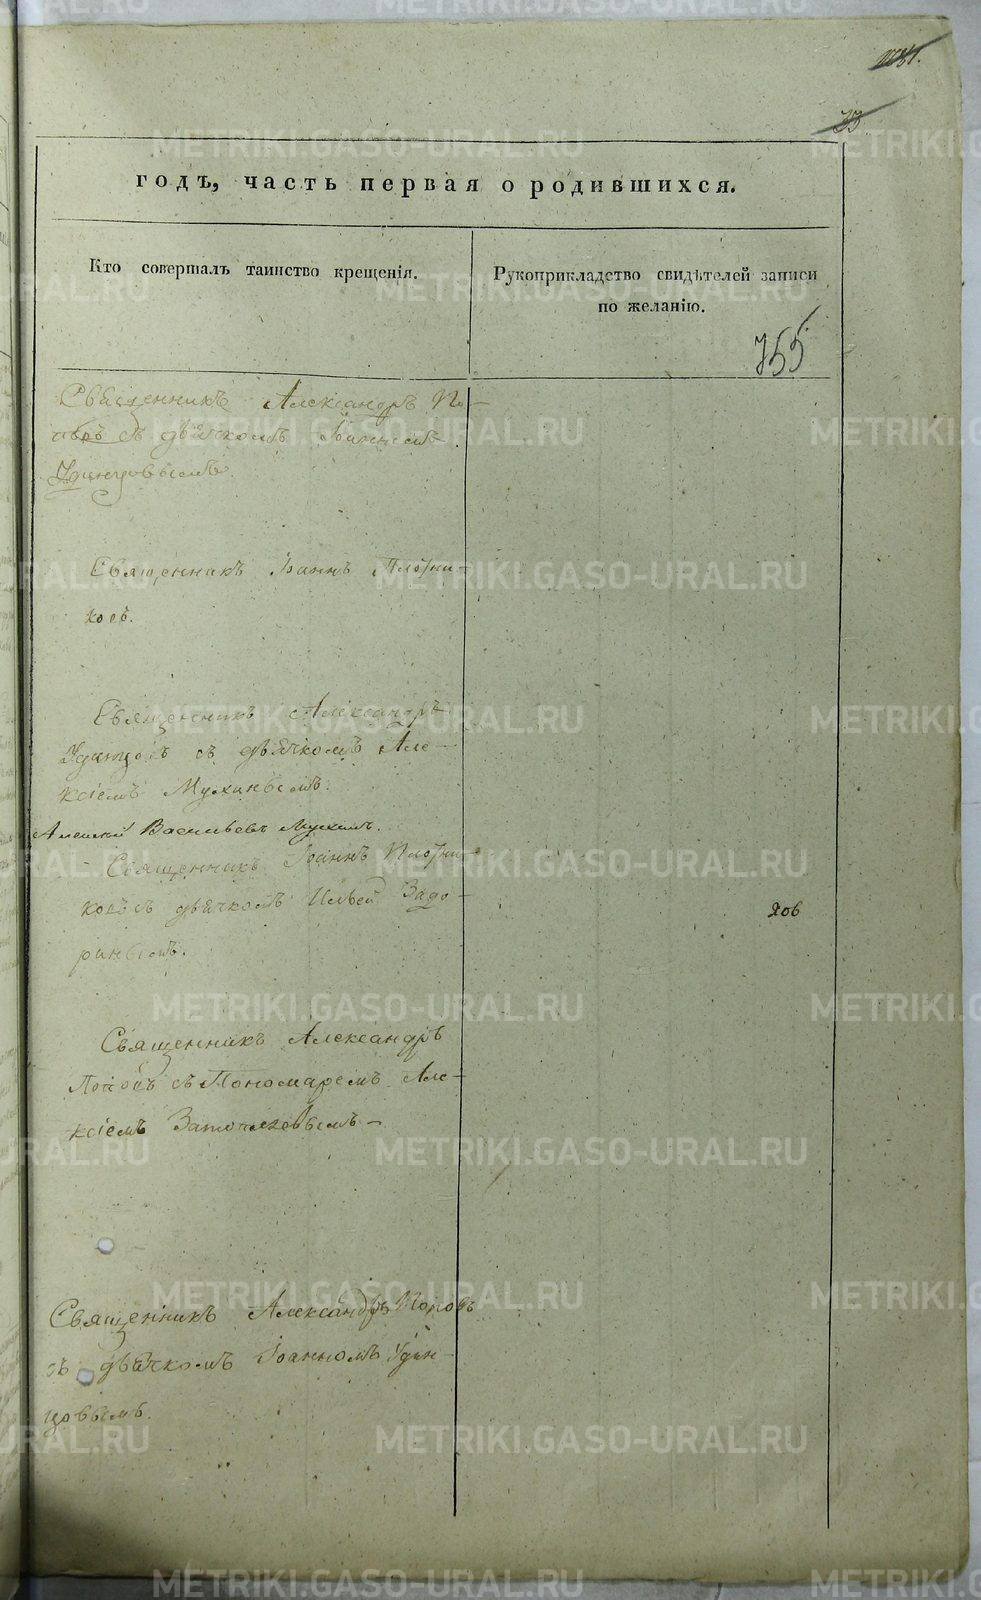 33
годъ, часть первая о родившихся.
Кто совершалъ таинство крещенія.
Рукоприкладство свидѣтелей записи
по желанію.
755
Священникъ Александръ По-
повъ съ дьячкомъ Іоанномъ
Удинцовымъ.
Священникъ Іоаннъ Плотни-
ковъ.
Священникъ Александръ
съ дьячкомъ Але-
ксіемъ Мухинымъ.
Алексей Васильевъ Мухинъ.
Священникъ Іоаннъ Плотни-
ковъ съ дьячкомъ Ильей Задо-
ринымъ.
Священникъ Александръ
Поповъ съ Пономаремъ Але-
ксіемъ
Священникъ Александръ Поповъ
съ дьячкомъ Іоанномъ Удин-
цовымъ.
METRIKI.GASO-URAL.RU